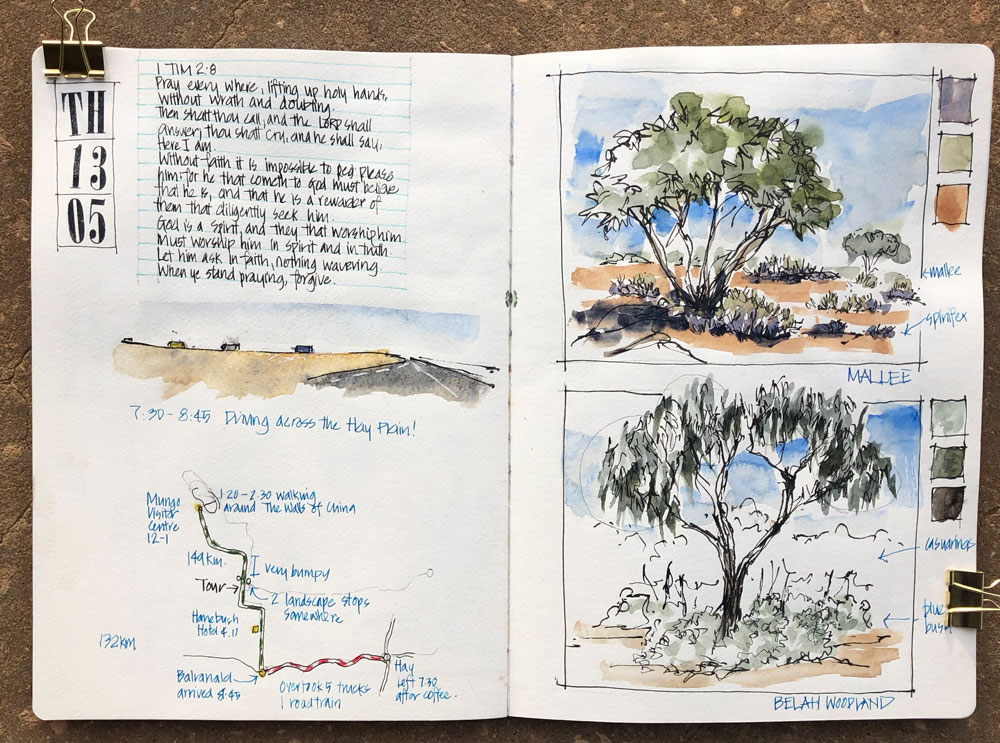 TH
13
05
1 TIM 2:8
Pray every where, lifting up holy hands,
without wrath and doubting.
Then shalt thou call, and the LORD shall
answer; thou shalt cry, and he shall say,
Here I am.
Without faith it is impossible to please
him: for he that cometh to God must believe
that he is, and that he is a rewarder of
them that diligently seek him.
God is a spirit, and they that worship him
Must worship him in spirit and in truth.
Let him ask in faith, nothing wavering.
When ye stand praying, forgive.
7:30 - 8:45 Driving across the Hay Plain!
Mungo
Visitor
Centre
12-1
1:20 - 2:30 walking
around the Walls of China
149km.
very bumpy
Tour
2 landscape stops
somewhere
Homebush
Hotel 9.11
132km
Balranald
arrived 8:45
over 170k 5 trucks
1 road train
Hay
left 7.30
after coffee.
mallee
spinifex
MALLEE
casuarinas
blue
bush
BELAH WOODLAND